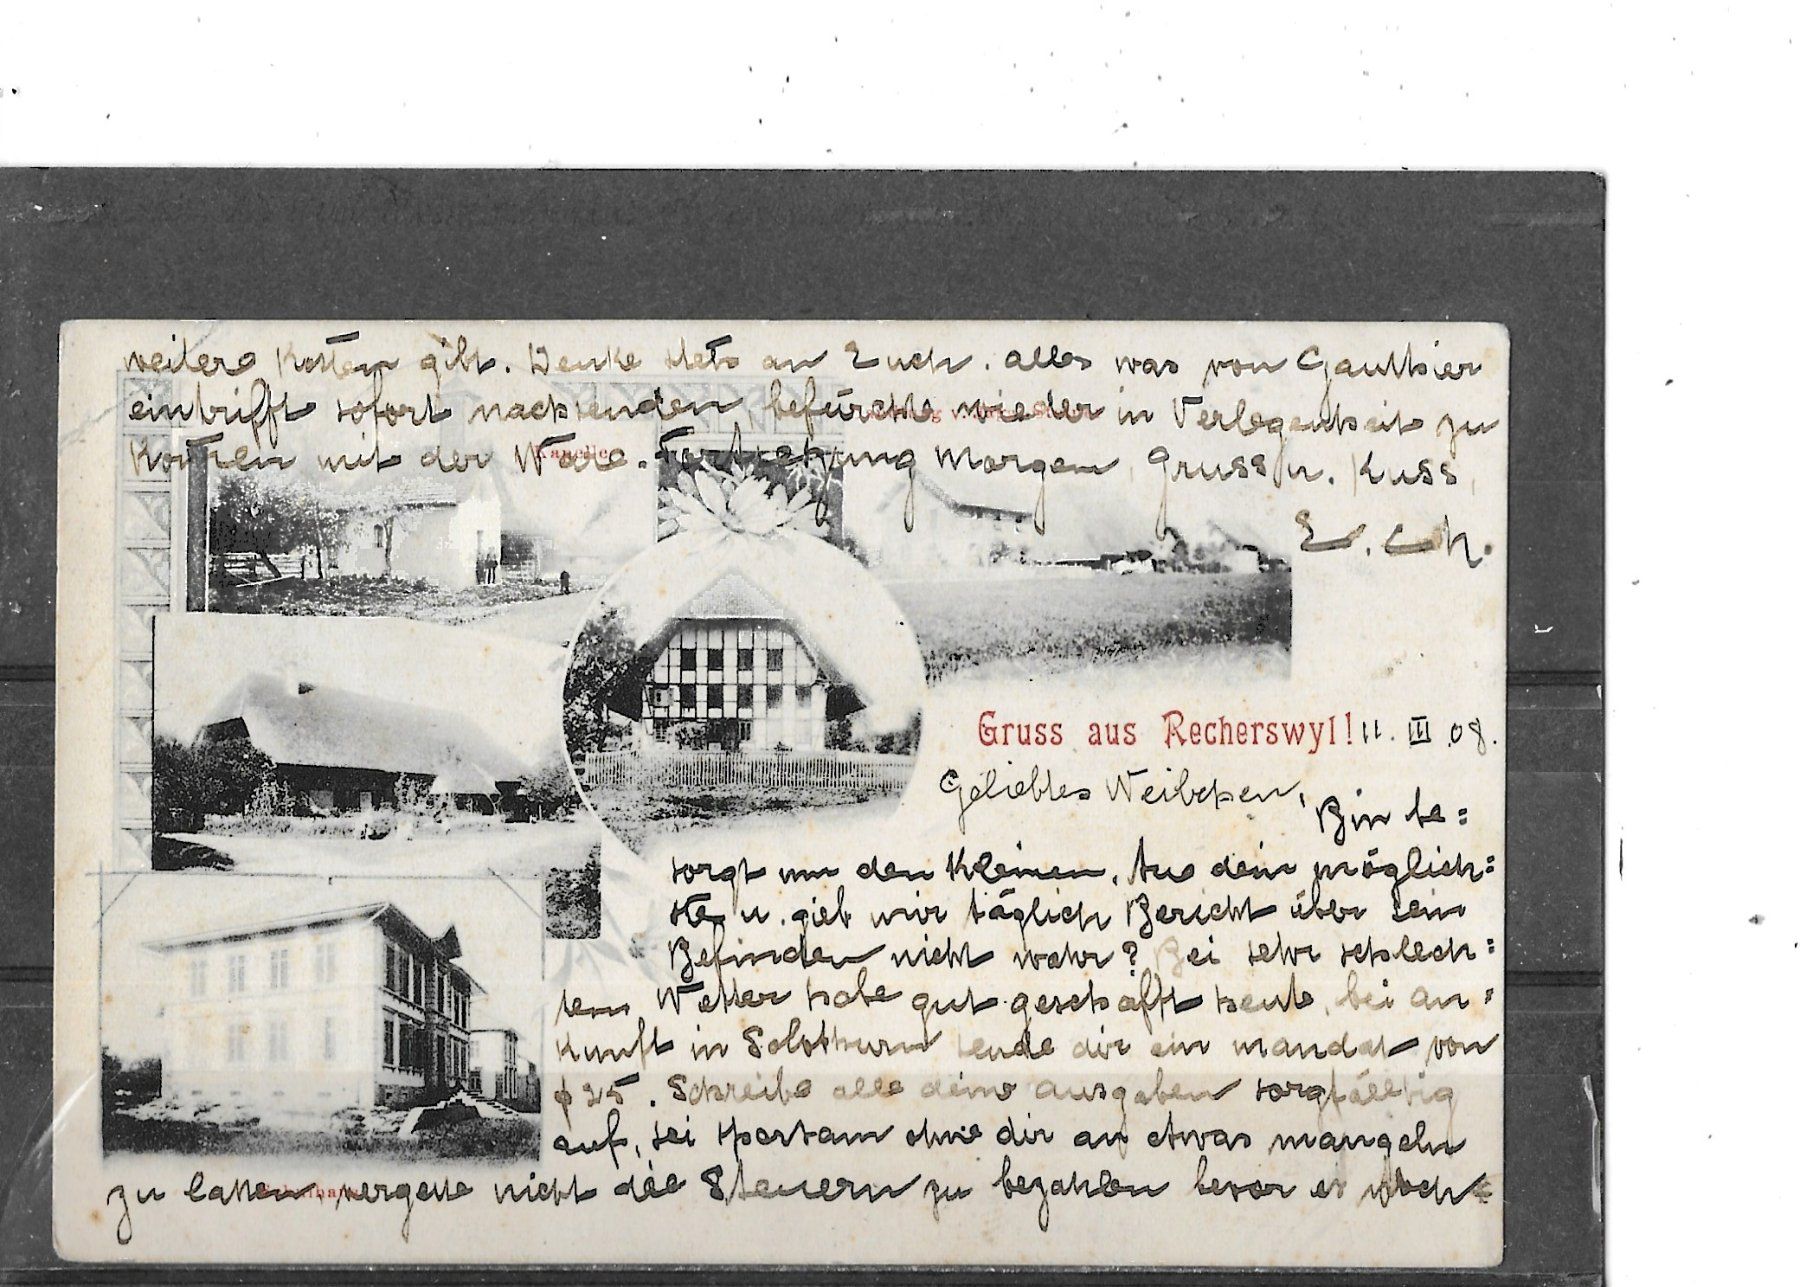 weitere Kosten gibt. Denke stets an Euch. alles was von Gauthier
eintrifft sofort nachsenden, befürchte wieder in Verlegenheit zu
kommen mit der Ware. Fortsetzung Morgen, Gruss u. Kuss,
Kapelle
E. Ch.
Gruss aus Recherswyl! 11. III. 08.
Geliebtes Weibchen,
Bin be=
sorgt um den Kleinen, tue dein möglich=
stes u. gieb mir täglich Bericht über sein
Befinden nicht wahr? Bei sehr schlech=
tem Wetter habe gut geschafft heute, bei An=
kunft in Solothurn sende dir ein mandat von
25. Schreibe alle deine ausgaben sorgfältig
auf, sei sparsam ohne dir an etwas mangeln
zu lassen, vergesse nicht die Steuern zu bezahlen bevor es noch